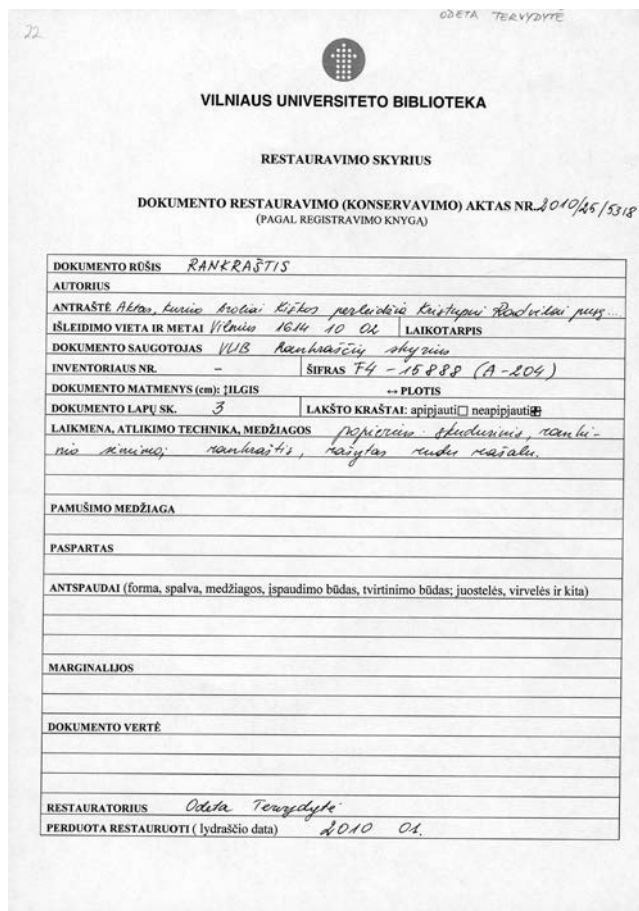 ODETA TERVYDYTĖ
22
VILNIAUS UNIVERSITETO BIBLIOTEKA
RESTAURAVIMO SKYRIUS
DOKUMENTO RESTAURAVIMO (KONSERVAVIMO) AKTAS NR. 2010/25/5318
(PAGAL REGISTRAVIMO KNYGĄ)
DOKUMENTO RŪŠIS RANKRAŠTIS
AUTORIUS
ANTRAŠTĖ Aktas, kuriuo broliai Kiškos perleidžia Kristupui Radvilai pusę...
IŠLEIDIMO VIETA IR METAI Vilnius 1614 10 02 LAIKOTARPIS
DOKUMENTO SAUGOTOJAS VUB Rankraščių skyrius
INVENTORIAUS NR. – ŠIFRAS F4-15888 (A-204)
DOKUMENTO MATMENYS (cm): ↕ILGIS ↔ PLOTIS
DOKUMENTO LAPŲ SK. 3 LAKŠTO KRAŠTAI: apipjauti□ neapipjauti⊞
LAIKMENA, ATLIKIMO TECHNIKA, MEDŽIAGOS popierius skudurinis, ranki-
nio sėmimo; rankraštis, rašytas rudu rašalu.
PAMUŠIMO MEDŽIAGA
PASPARTAS
ANTSPAUDAI (forma, spalva, medžiagos, įspaudimo būdas, tvirtinimo būdas; juostelės, virvelės ir kita)
MARGINALIJOS
DOKUMENTO VERTĖ
RESTAURATORIUS Odeta Tervydytė
PERDUOTA RESTAURUOTI ( lydraščio data) 2010 01.